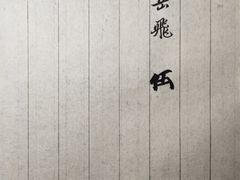 岳飛 伍